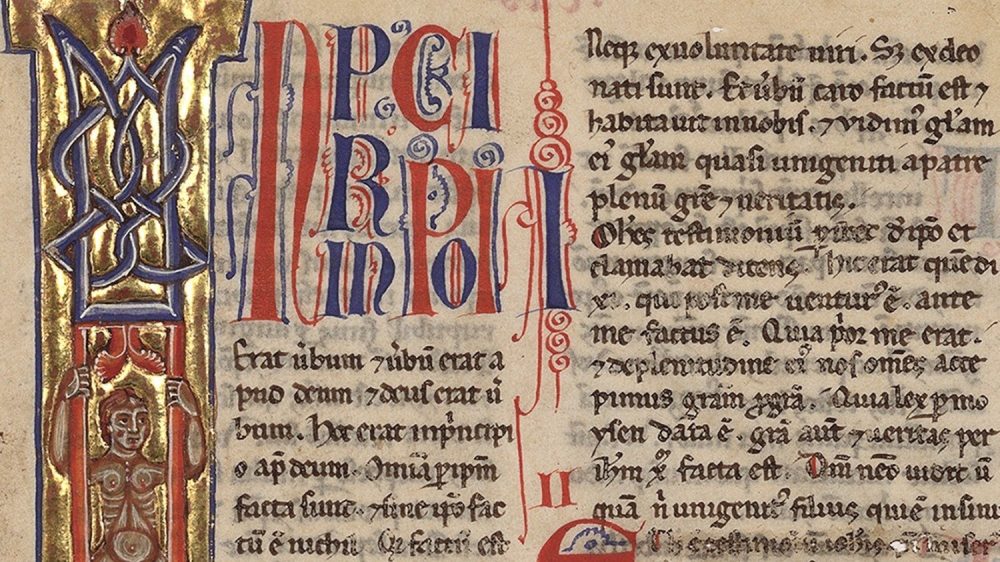 IN PRINCIPIO
Erat u̅bum ⁊ u̅bu̅ erat a
pud deum ⁊ deus erat u̅
bum. Hoc erat inp̍ncipi
o ap̅ deum. Om̅ia ꝑ ip̅m
facta sunt. ⁊ sine ip̅o fac
tu̅ e̅ nichil. Qd̅ factu̅ est
Neqꝫ exuoluntate uiri. Sꝫ exdeo
nati sunt. Et u̅bu̅ caro factu̅ est ⁊
habitauit innobis. ⁊ vidimꝰ gl̅am
eiꝰ gl̅am quasi unigeniti apatre
plenu̅ gr̅e ⁊ ueritatis.
Ioh̅es testimoniu̅ ꝑhibet d̅ ip̅o et
clamabat dicens. Hic erat que̅ di
xi. qui post me uenturꝰ e̅. ante
me factus e̅. Quia p̍or me erat.
⁊ deplenitudine eiꝰ nos om̅es acce
pimus gr̅am ꝓ gr̅a. Quia lex ꝑ mo
ysen data e̅. gr̅a aut̅ ⁊ ueritas per
ih̅m xp̅m facta est. Dm̅ nemo uidit u̅
II
qua̅ n̍ unigenitꝰ filius, qui e̅ insinu